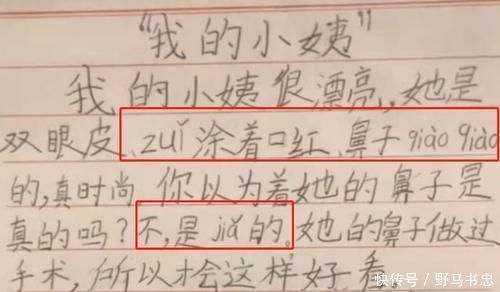 “我的小姨”
我的小姨很漂亮,她是
双眼皮、zuǐ涂着口红、鼻子qiào qiào
的,真时尚 你以为着她的鼻子是
真的吗?不,是jiǎ的。她的鼻子做过
手术,所以才会这样好看。
快传号/野马书忠